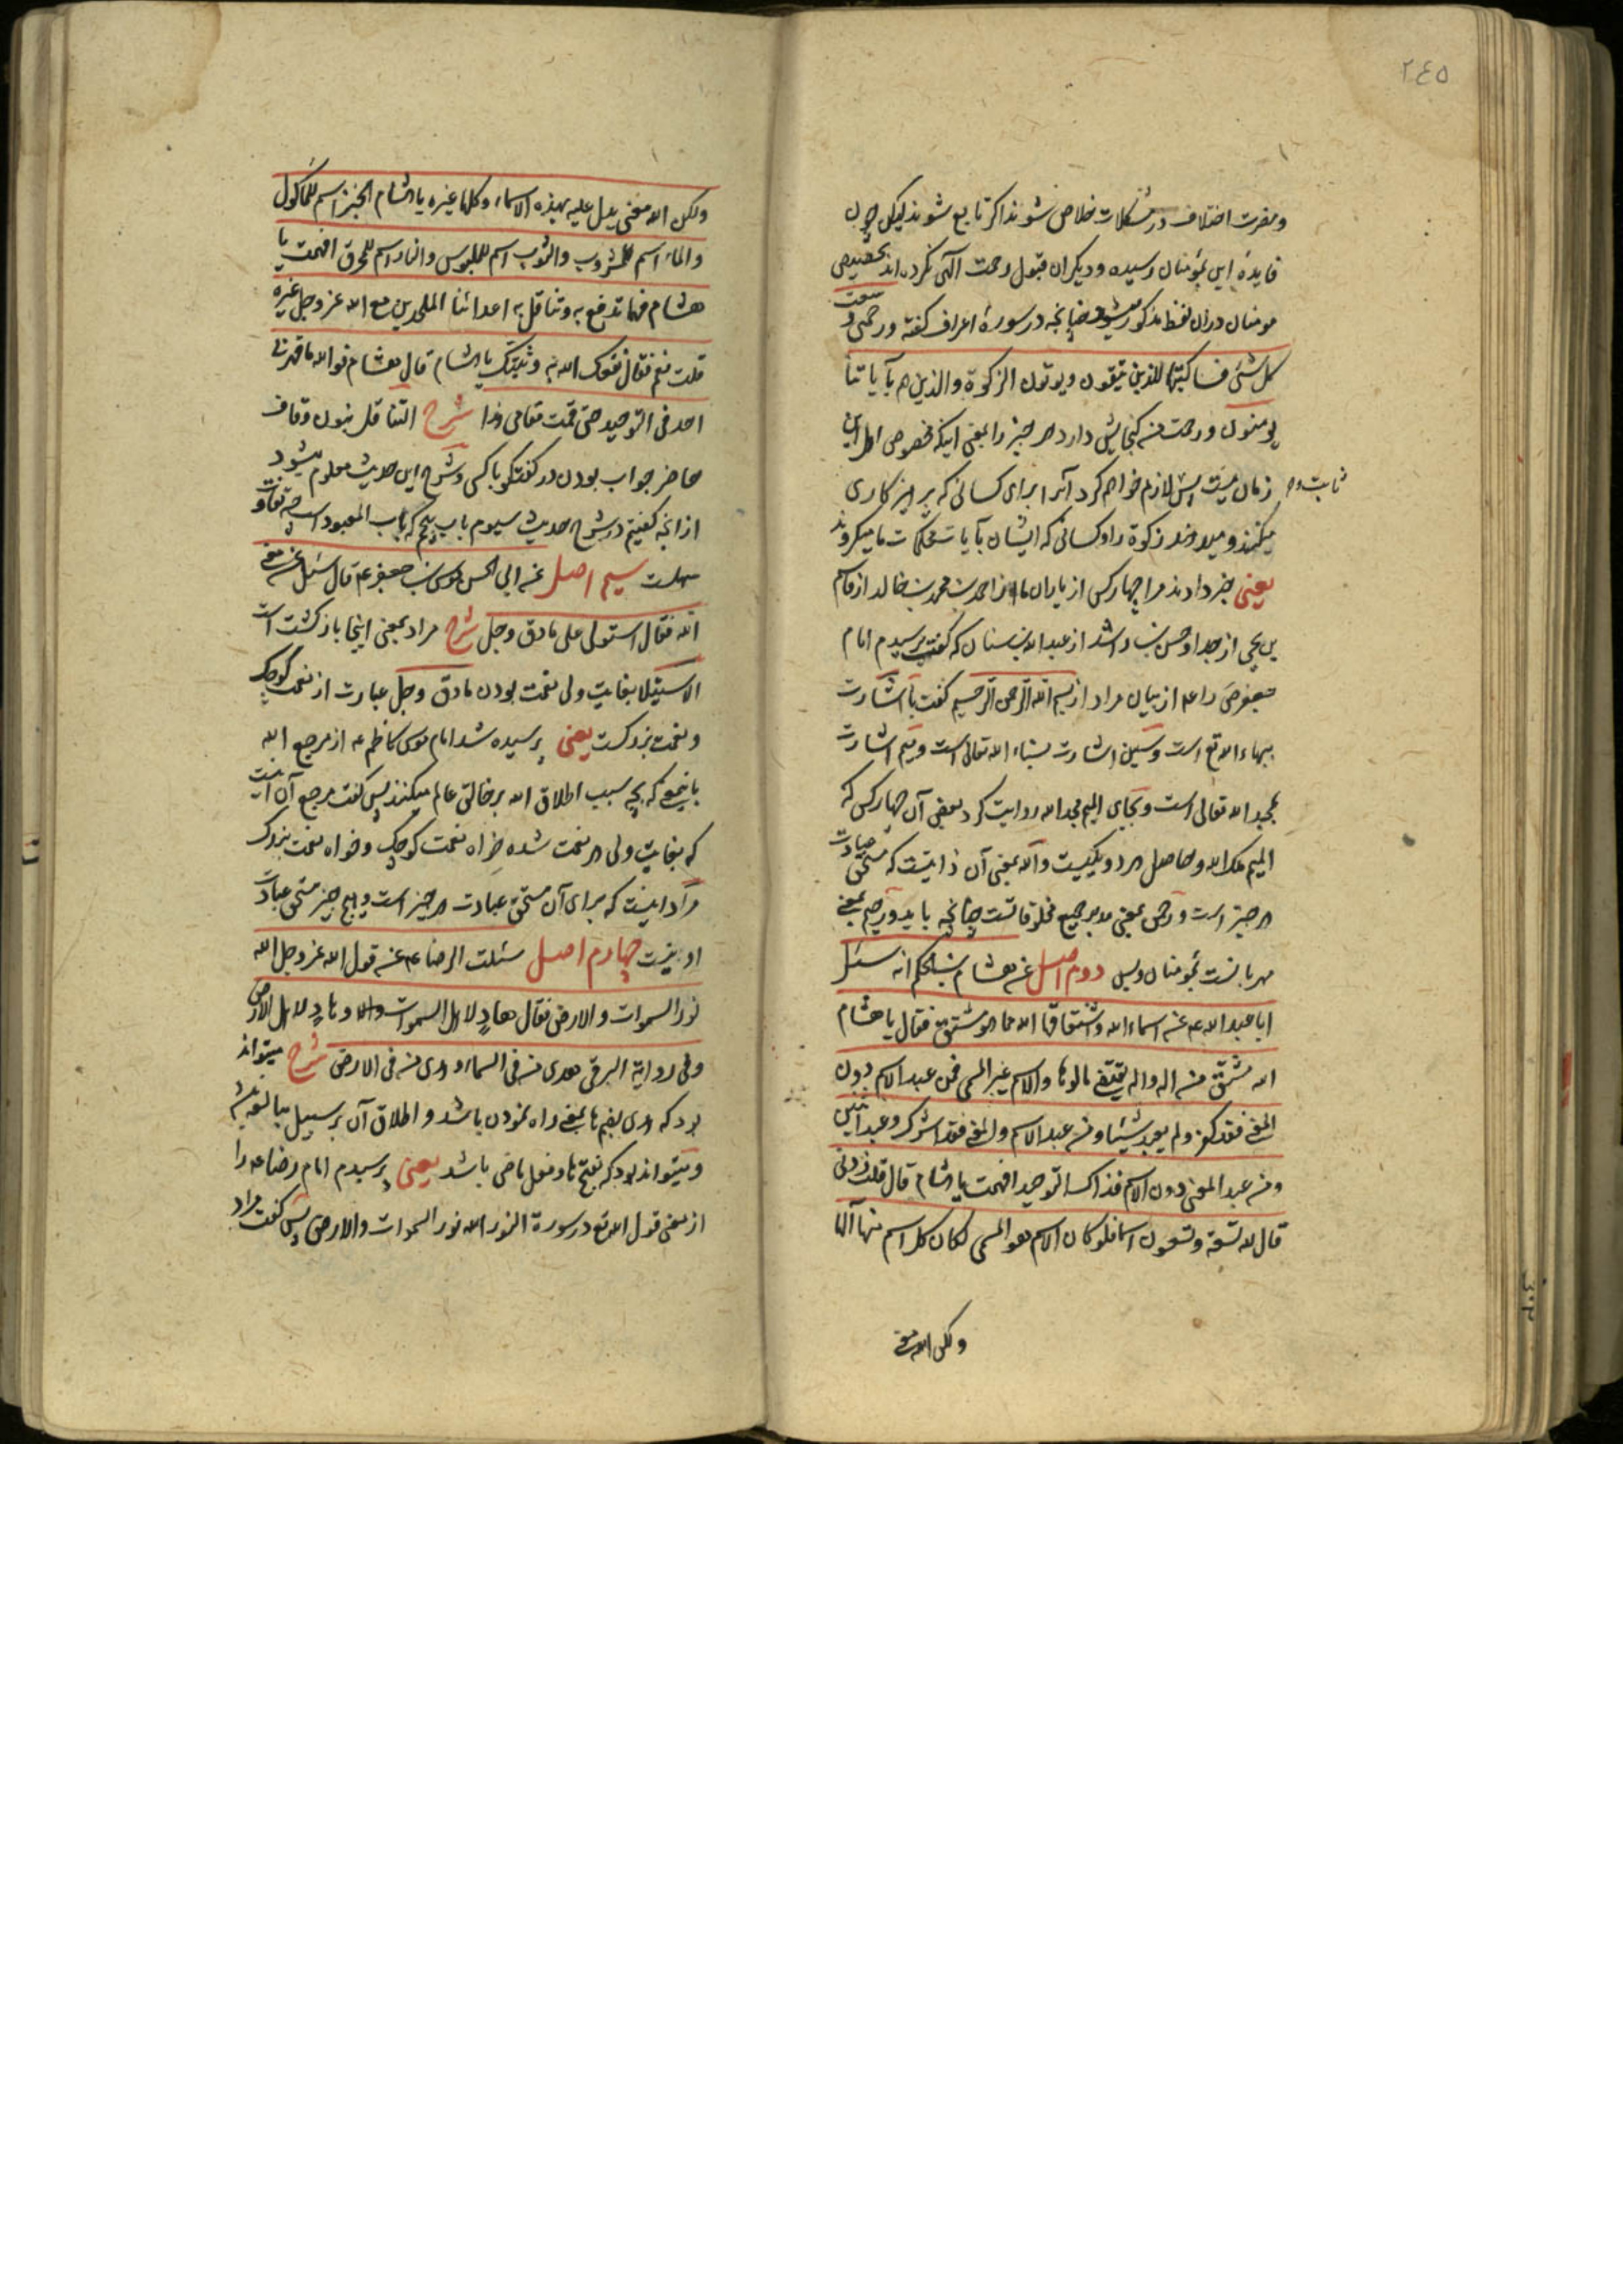 ٢٤٥
ومضرت اختلاف در مشکلات خلاص شوند اکر تابع شوند لیکن چون
فایدهٔ این بمؤمنان رسیده و دیکران قبول رحمت الهی نکرده اند تخصیص
مومنان در ان لفظ مذکور میشود چنانچه در سورهٔ اعراف کفته ورحمتی وسعت
کل شئ فساکتبها للذین یتقون ویوتون الزکوة والذین هم بآیاتنا
یومنون ورحمت من کنجایش دارد هر چیز را بمعنی اینکه مخصوص اهل این
زمان نیست پس لازم خواهم کرد آنرا برای کسانی که پرهیزکاری
ثابت
میکنند و میدهند زکوة را و کسانی که ایشان بآیات محکمات ما میکروند
یعنی خبر دادند مرا چهار کس از یاران ما از احمد بن محمد بن خالد از قاسم
بن یحیی از جد او حسن بن راشد از عبد الله بن سنان که کفت پرسیدم امام
جعفر ص را ع از بیان مراد از بسم الله الرحمن الرحیم کفت با اشارت
ببهاء الله تع است وسین اشارت بسناء الله تعالی است ومیم اشارت
بمجد الله تعالی است و بجای المیم مجد الله روایت کرد بعض آن چهار کس که
المیم ملک الله وحاصل هر دو یکیست والله بمعنی آن ذاتیست که مستحق عبادت
هر چیز است ورحمن بمعنی مدبر جمیع مخلوقاتست چنانچه باید ورحیم بمعنی
مهربانست بمومنان وبس دوم اصل عن هشام بن الحکم انه سئل
ابا عبد الله ع عن اسماء الله واشتقاقها الله مما هو مشتق فقال یا هشام
الله مشتق من اله واله یقتضی مالوها والاسم غیر المسمی فمن عبد الاسم دون
المعنی فقد کفر ولم یعبد شیئا ومن عبد الاسم والمعنی فقد اشرک وعبد اثنین
ومن عبد المعنی دون الاسم فذاک التوحید افهمت یا هشام قال قلت زدنی
قال لله تسعة وتسعون اسما فلو کان الاسم هو المسمی لکان کل اسم منها الها
ولکن الله معنی
ولکن الله معنی یدل علیه بهذه الاسماء وکلها غیره یا هشام الخبز اسم للماکول
والماء اسم للمشروب والثوب اسم للملبوس والنار اسم للمحرق افهمت یا
هشام فهما تدفع به وتناقل به اعدائنا الملحدین مع الله عز وجل غیره
قلت نعم فقال نفعک الله به وثبتک یا هشام قال هشام فوالله ما قهرنی
احد فی التوحید حتی قمت مقامی هذا شرح التناقل بنون وقاف
حاضر جواب بودن در کفتکو با کسی وشرح این حدیث معلوم میشود
ازانچه کفتیم در شرح حدیث سیوم باب پنجم که باب المعبود است چه تفاوت
سهلست سیم اصل عن ابی الحسن موسی بن جعفر ع قال سئل عن معنی
الله فقال استولی علی ما دق وجل شرح مراد بمعنی اینجا بازکشت است
الاستیلا بغایت ولی نعمت بودن ما دق وجل عبارت از نعمت کوچک
ونعمت بزرکست یعنی پرسیده شد امام موسی کاظم ع از مرجع الله
باینمعنی که بچه سبب اطلاق الله بر خالق عالم میکنند پس کفت مرجع آن اینست
که بغایت ولی هر نعمت شده خواه نعمت کوچک وخواه نعمت بزرک
مراد اینست که برای آن مستحق عبادت هر چیز است وهیچ چیز مستحق عبادت
او نیست چهارم اصل سئلت الرضا ع عن قول الله عز وجل الله
نور السموات والارض فقال هاد لاهل السموات وهاد لاهل الارض
وفی روایة البرقی هدی من فی السماء وهدی من فی الارض شرح میتواند
بود که هدی بضم ها بمعنی راه نمودن باشد و اطلاق آن بر سبیل مبالغه باشد
ومیتواند بود که بفتح ها وفعل ماضی باشد یعنی پرسیدم امام رضا ع را
از معنی قول الله تع در سورة النور الله نور السموات والارض پس کفت مراد